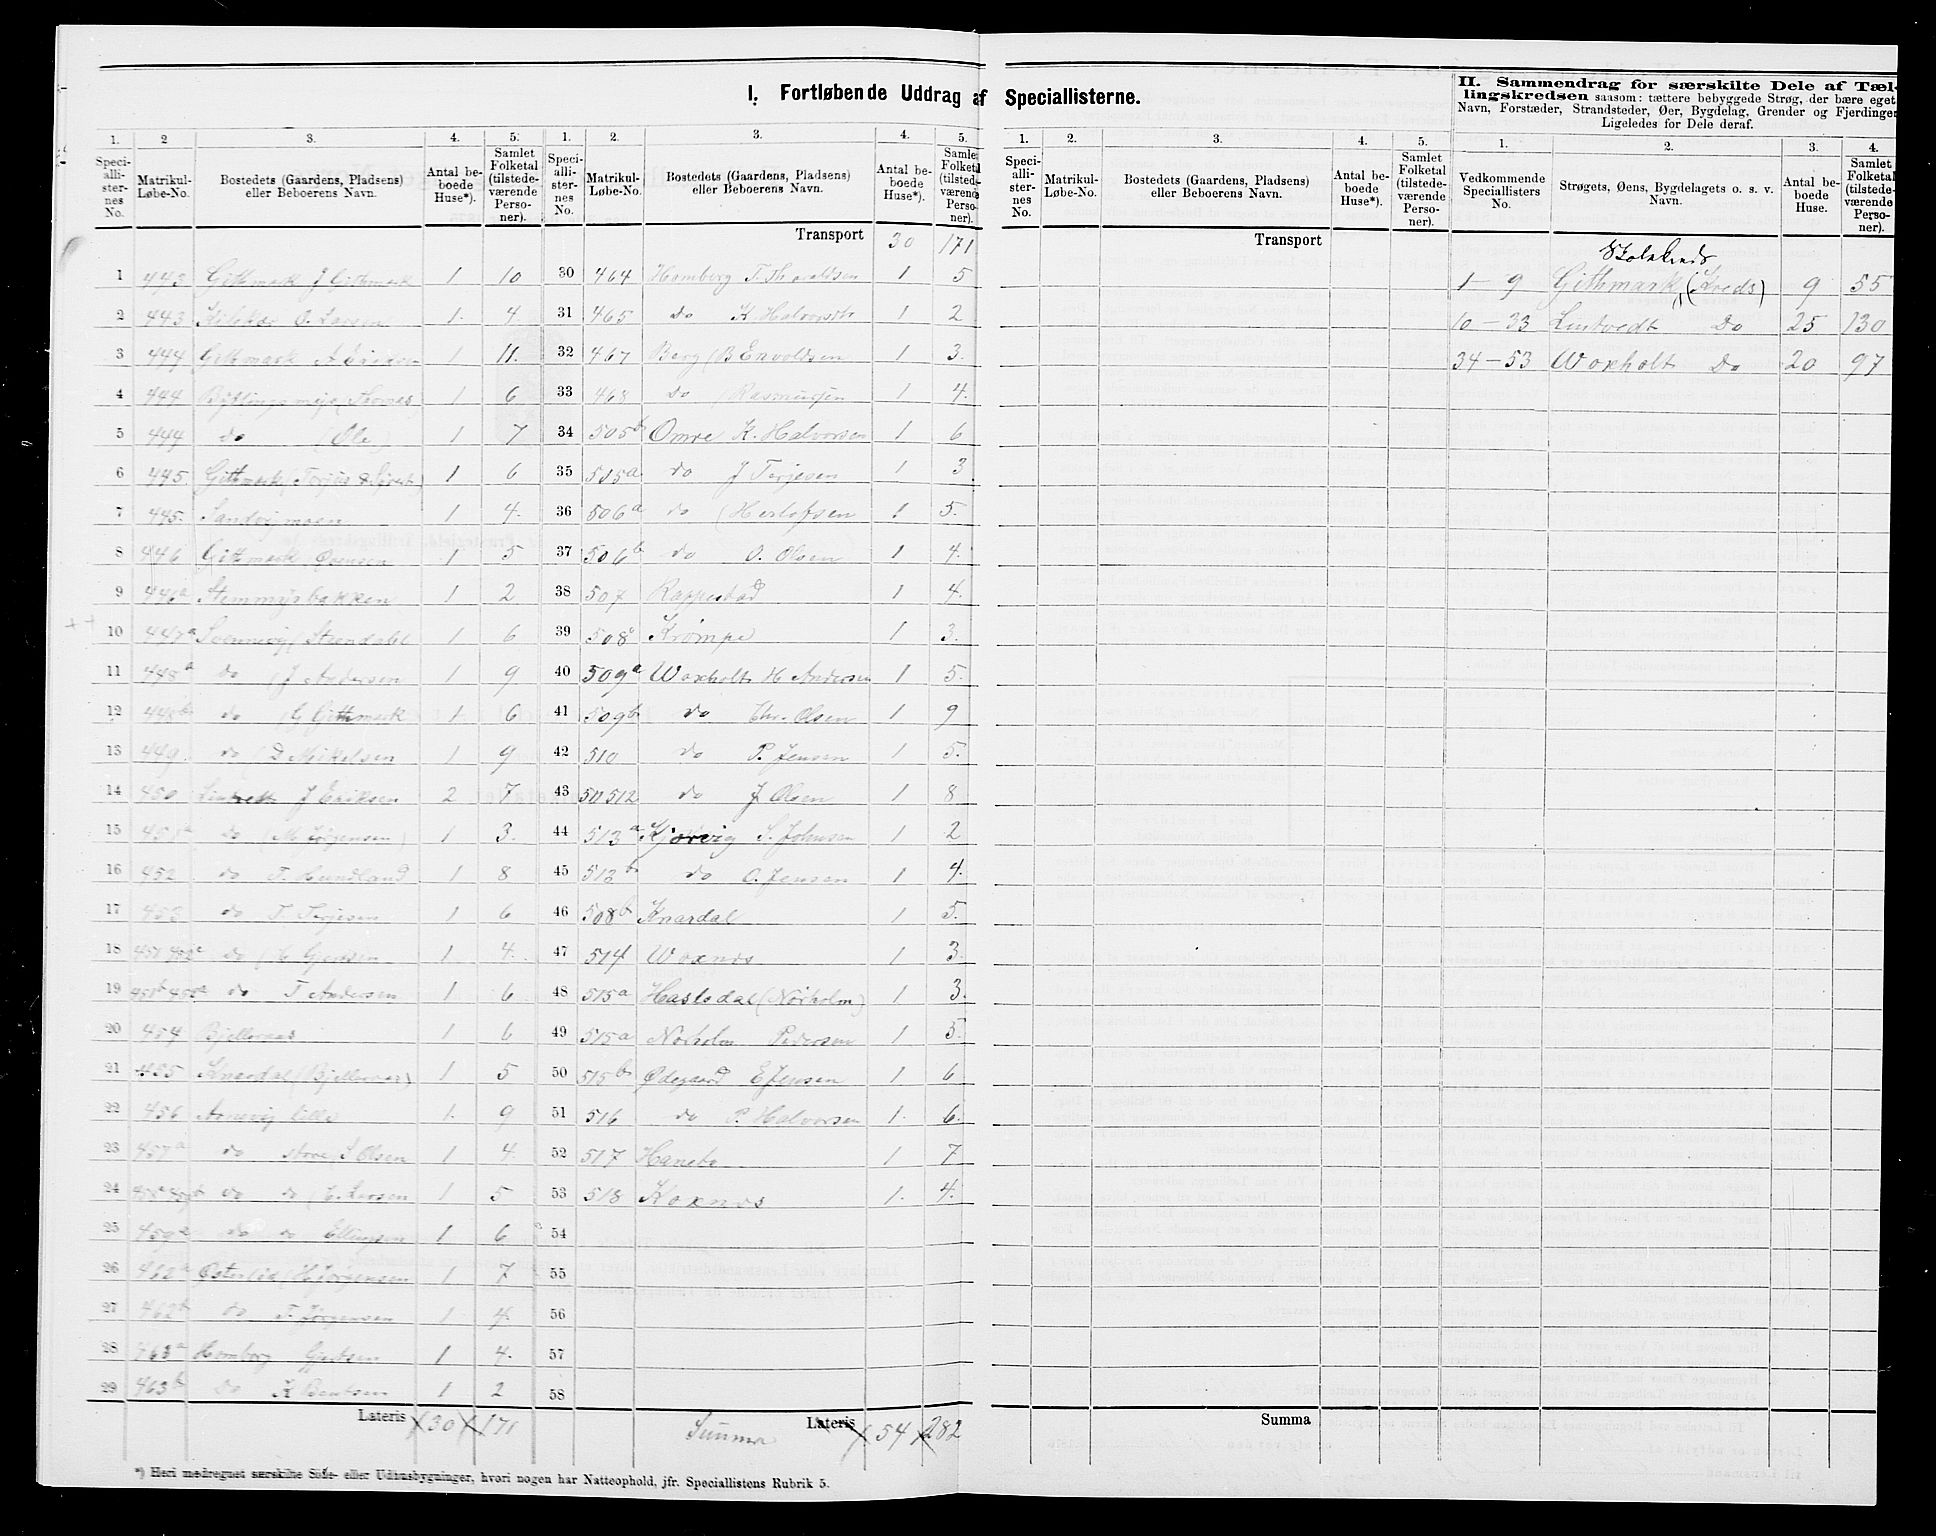 I. Fortløbende Uddrag af Speciallisterne.
II. Sammendrag for særskilte Dele af Tællingskredsen saasom: tættere bebyggede Strøg, der bære eget
Navn, Forstæder, Strandsteder, Øer, Bygdelag, Grender og Fjerdinger
Ligeledes for Dele deraf.
1. 2 3. 4. 5. 1. 2. 3. 4. 5.
Speciallisternes No. Matrikul-Løbe-No. Bostedets (Gaardens, Pladsens) eller Beboerens Navn. Antal beboede Huse*). Samlet Folketal (tilstedeværende Personer).
Speciallisternes No. Matrikul-Løbe-No. Bostedets (Gaardens, Pladsens) eller Beboerens Navn. Antal beboede Huse*). Samlet Folketal (tilstedeværende Personer).
1 443 Githmark J Githmark 1 10
2 443 O. Larsen 1 4
3 444 Githmark A Eriksen 1 11.
4 444 1 6
5 444 do (Ole) 1 7
6 445 Githmark 1 6
7 445. Sandvigmoen 1 4.
8 446 Githmark 1 5
9 446a Stemmyrbakken 1 2
10 447a 1 6
11 448a do (J Andersen 1 9
12 448b do Githmark 1 6
13 449. do (D Mikelsen 1 9
14 450 J Eriksen 2 7
15 451a do (M. Jørgensen) 1 3.
16 452 do T. Hundland 1 8
17 453 do T. Terjesen 1 6
18 do Gjertsen 1 4.
19 do T Andersen 1 6
20 454 1 6
21 455 Knardal 1 5
22 456 Arnevig lille 1. 9
23 457a do store Olsen 1 4
24 do do Larsen 1 5
25 459a do do Ellingsen 1 6
26 Jørgensen 1 7
27 462b do T. Jørgensen 1 4
28 463a Homborg Gjertsen 1 4.
29 463b do K Bentsen 1 2
Lateris 30 171
Transport 30 171
30 464 Homborg T. Thoraldsen 1 5
31 465 do K Halvorsen 1 2
32 467 Berg (B Envoldsen 1 3.
33 468 do (Rasmusjen 1 4.
34 505b Omre K. Halvorsen 1 6
35 do J Terjesen 1 3
36 506a do (Herlofsen 1 5.
37 506b do O. Olsen 1 4.
38 507 Rappestad 1 4.
39 508 Krømpe 1 3.
40 509a Woxholt H Andersen 1 5.
41 509b do Chr. Olsen 1 9
42 510 do P. Jensen 1 5.
43 511 512 do J Olsen 1 8
44 513a Kjørvig S. Johnsen 1 2
45 513b do O. Jensen 1 4.
46 508b Knardal 1 5.
47 514 Woxnes 1 3.
48 515a Hasledal (Nørholm) 1 3.
49 515a Nørholm Pedersen 1 5.
50 515b Ødegaard E Jensen 1 6
51 516 do P. Halvorsen 1. 6.
52 517 Hanebo 1 7
53 518 Koxnes 1. 4.
54
55
56
57
58
Summa Lateris 54 282
*) Heri medregnet særskilte Side- eller Udhusbygninger, hvori nogen har Natteophold, jfr. Speciallistens Rubrik 5.
1. 2. 3. 4. 5.
Speciallisternes No. Matrikul-Løbe-No. Bostedets (Gaardens, Pladsens) eller Beboerens Navn. Antal beboede Huse*). Samlet Folketal (tilstedeværende Personer).
Transport
Summa
1. 2. 3. 4.
Vedkommende Speciallisters No. Strøgets, Øens, Bygdelagets o. s. v. Navn. Antal beboede Huse. Samlet Folketal (tilstedeværende Personer).
Skolekreds
1 – 9 Githmark (Kreds) 9 55
10 – 33 Lintvedt do 25 130
34 – 53 Woxholt do 20 97